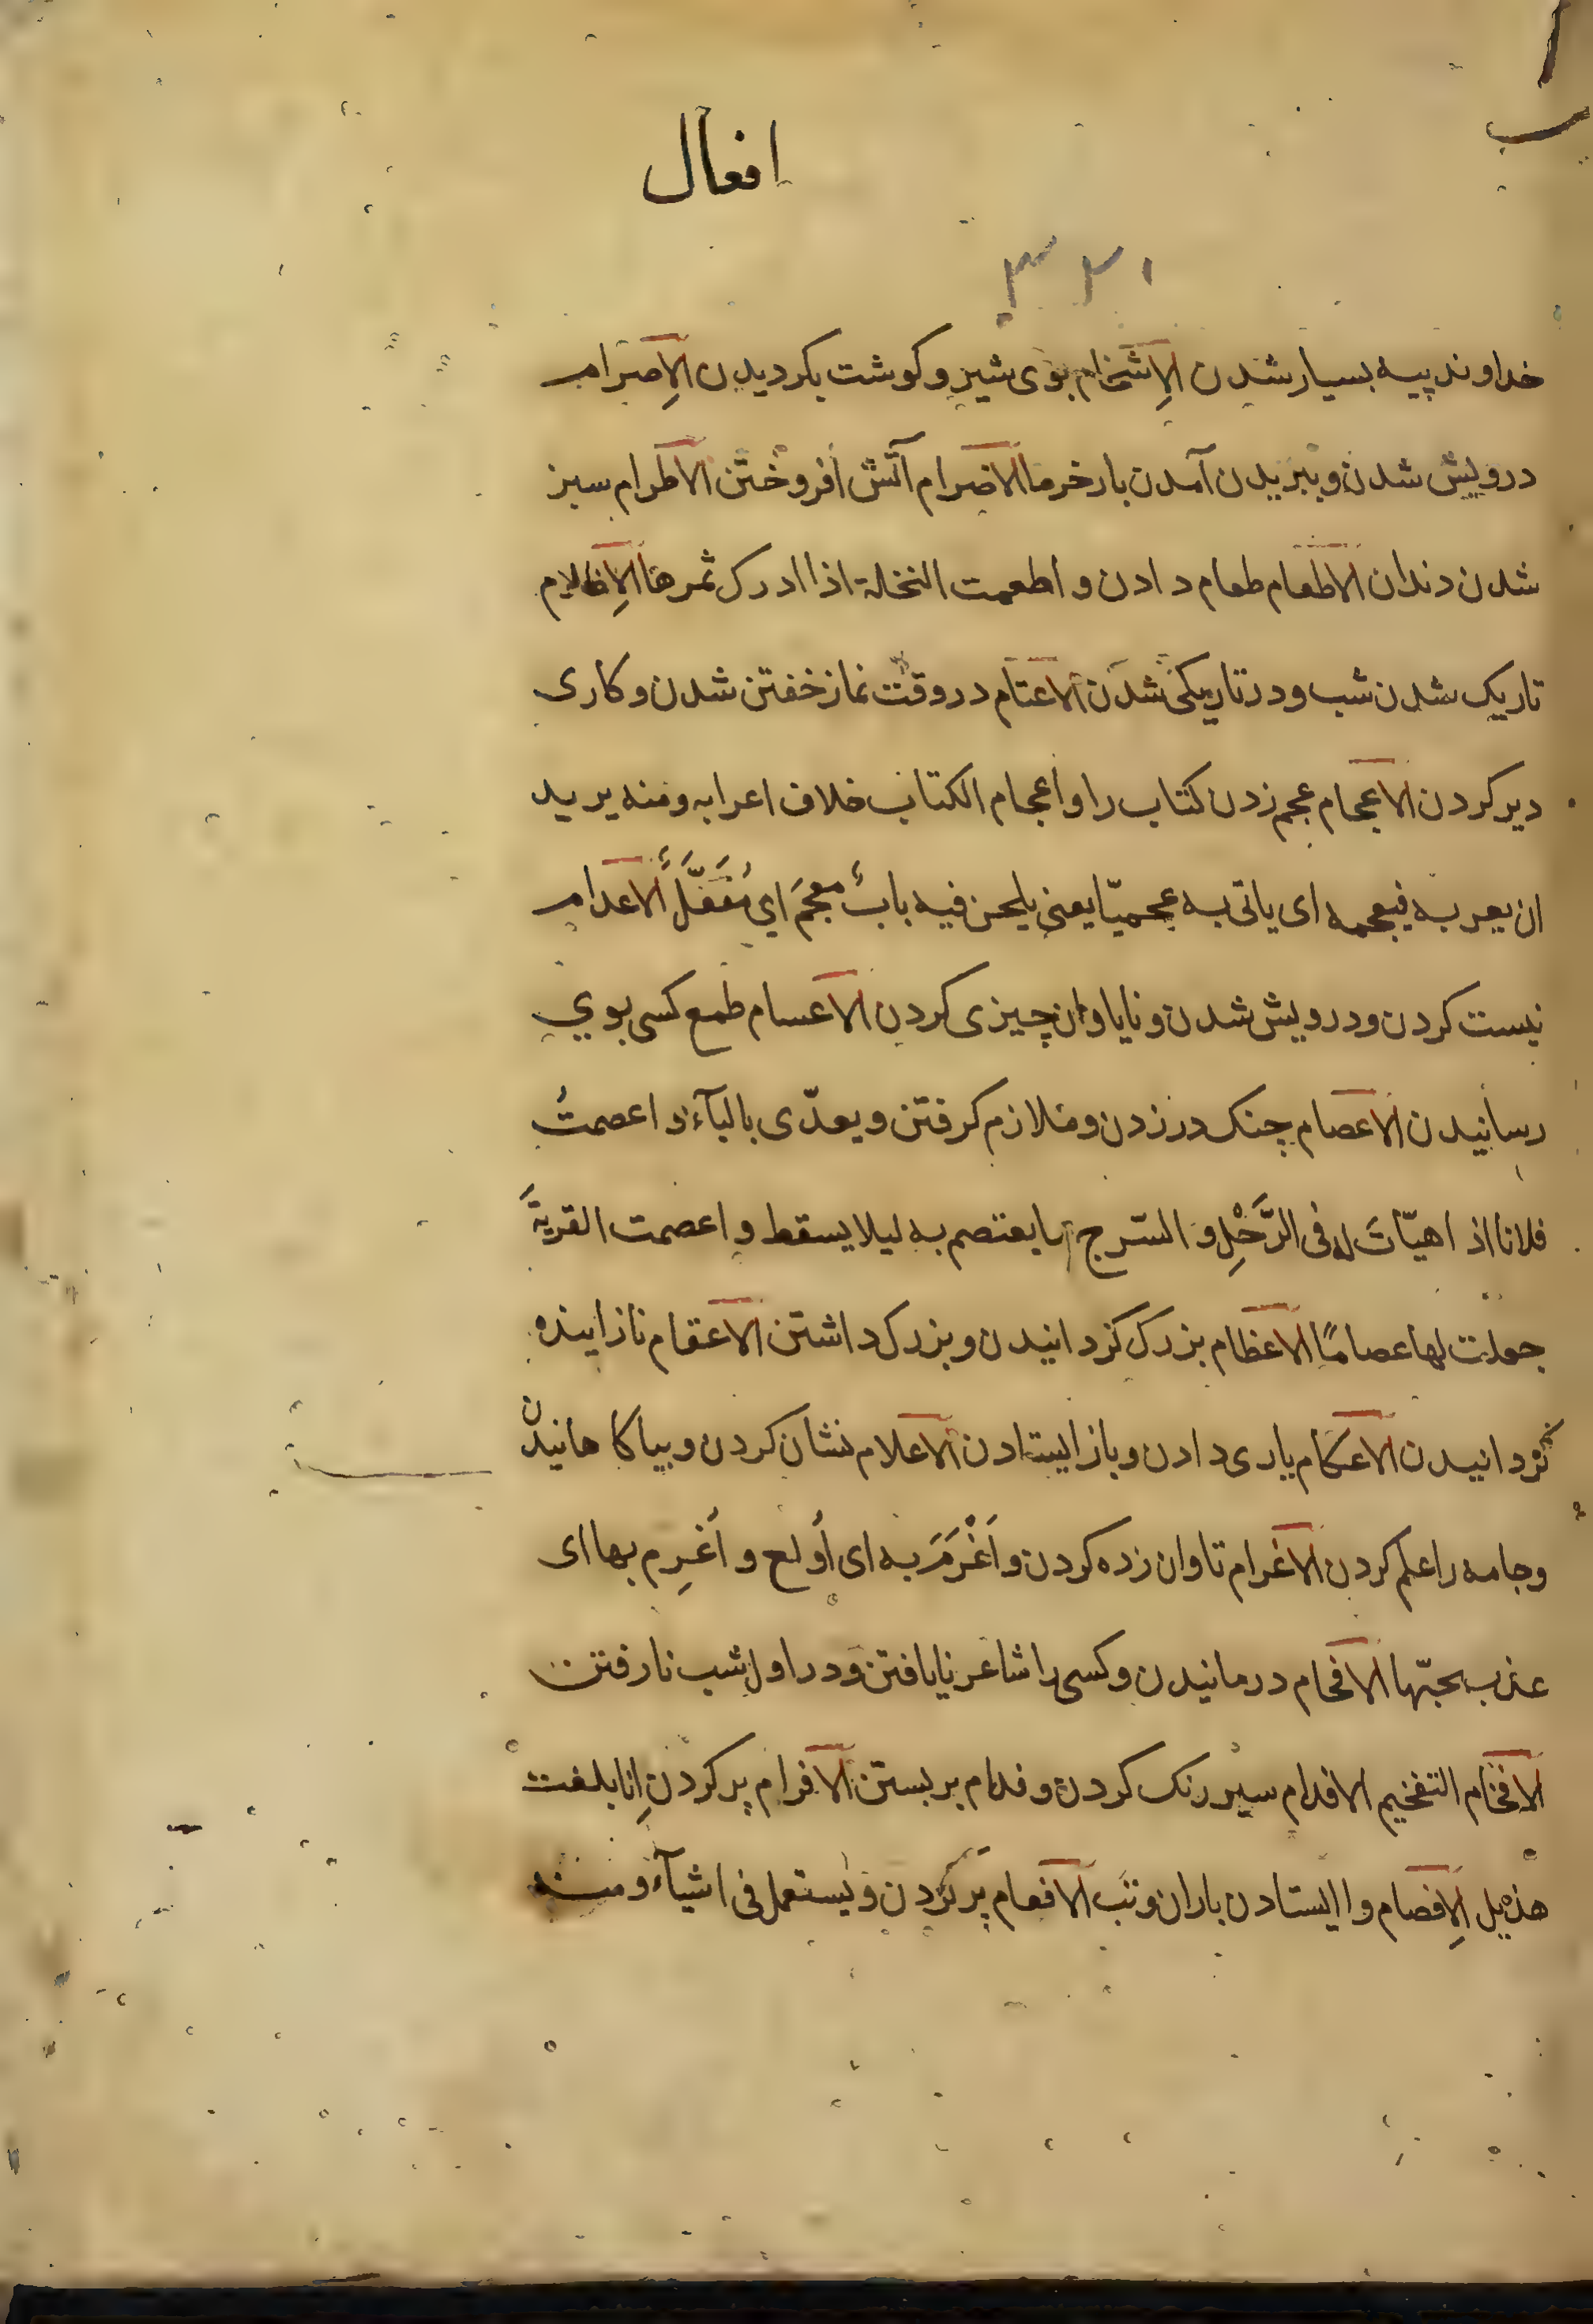 افعال
خداوند پیه بسیار شدن الاِشخام بوی شیر و کوشت بکردیدن الاِصرام
درویش شدن و ببریدن آمدن بار خرما الاضرام آتش افروختن الاطرام سبز
شدن دندان الاطعام طعام دادن و اطعمت النخلة اذا ادرک ثمرها الاِظلام
تاریک شدن شب و در تاریکی شدن الاعتام در وقت نماز خفتن شدن و کاری
دیر کردن الاعجام عجم زدن کتاب را و اعجام الکتاب خلاف اعرابه ومنه یرید
ان یعربه فیعجمه ای یاتی به عجمیّا یعنی یلحن فیه بابٌ معجَم اي مُقَفَّلٌ الاعدام
نیست کردن و درویش شدن و نایاوان چیزی کردن الاعسام طمع کسی بوي
رسانیدن الاعصام چنک در زدن و ملازم کرفتن و یعدّی بالبآء و اعصمتُ
فلانا اذا هیّاتَ له فی الرَّحْلِ و السّرج ما یعتصم به لیلا یسقط و اعصمت القربةَ
جعلت لها عصامًا الاعظام بزرک کردانیدن و بزرک داشتن الاعقام نازاینده
کردانیدن الاعکام یاری دادن و باز ایستادن الاعلام نشان کردن و بیاکاهانیدن
و جامه را علم کردن الاغرام تاوان زده کردن و اَغْرَمَ به ای اُولع و اُغرِم بها ای
عذب بحبّها الافحام درمانیدن و کسی را شاعر نایافتن و در اول شب نارفتن
الافخام التفخیم الافدام سیر رنک کردن و فدام بر بستن الافرام پر کردنِ انا بلغت
هذیل الاِفصام وا ایستادن باران و تب الافعام پر کردن و یستعمل فی اشیآء و منه